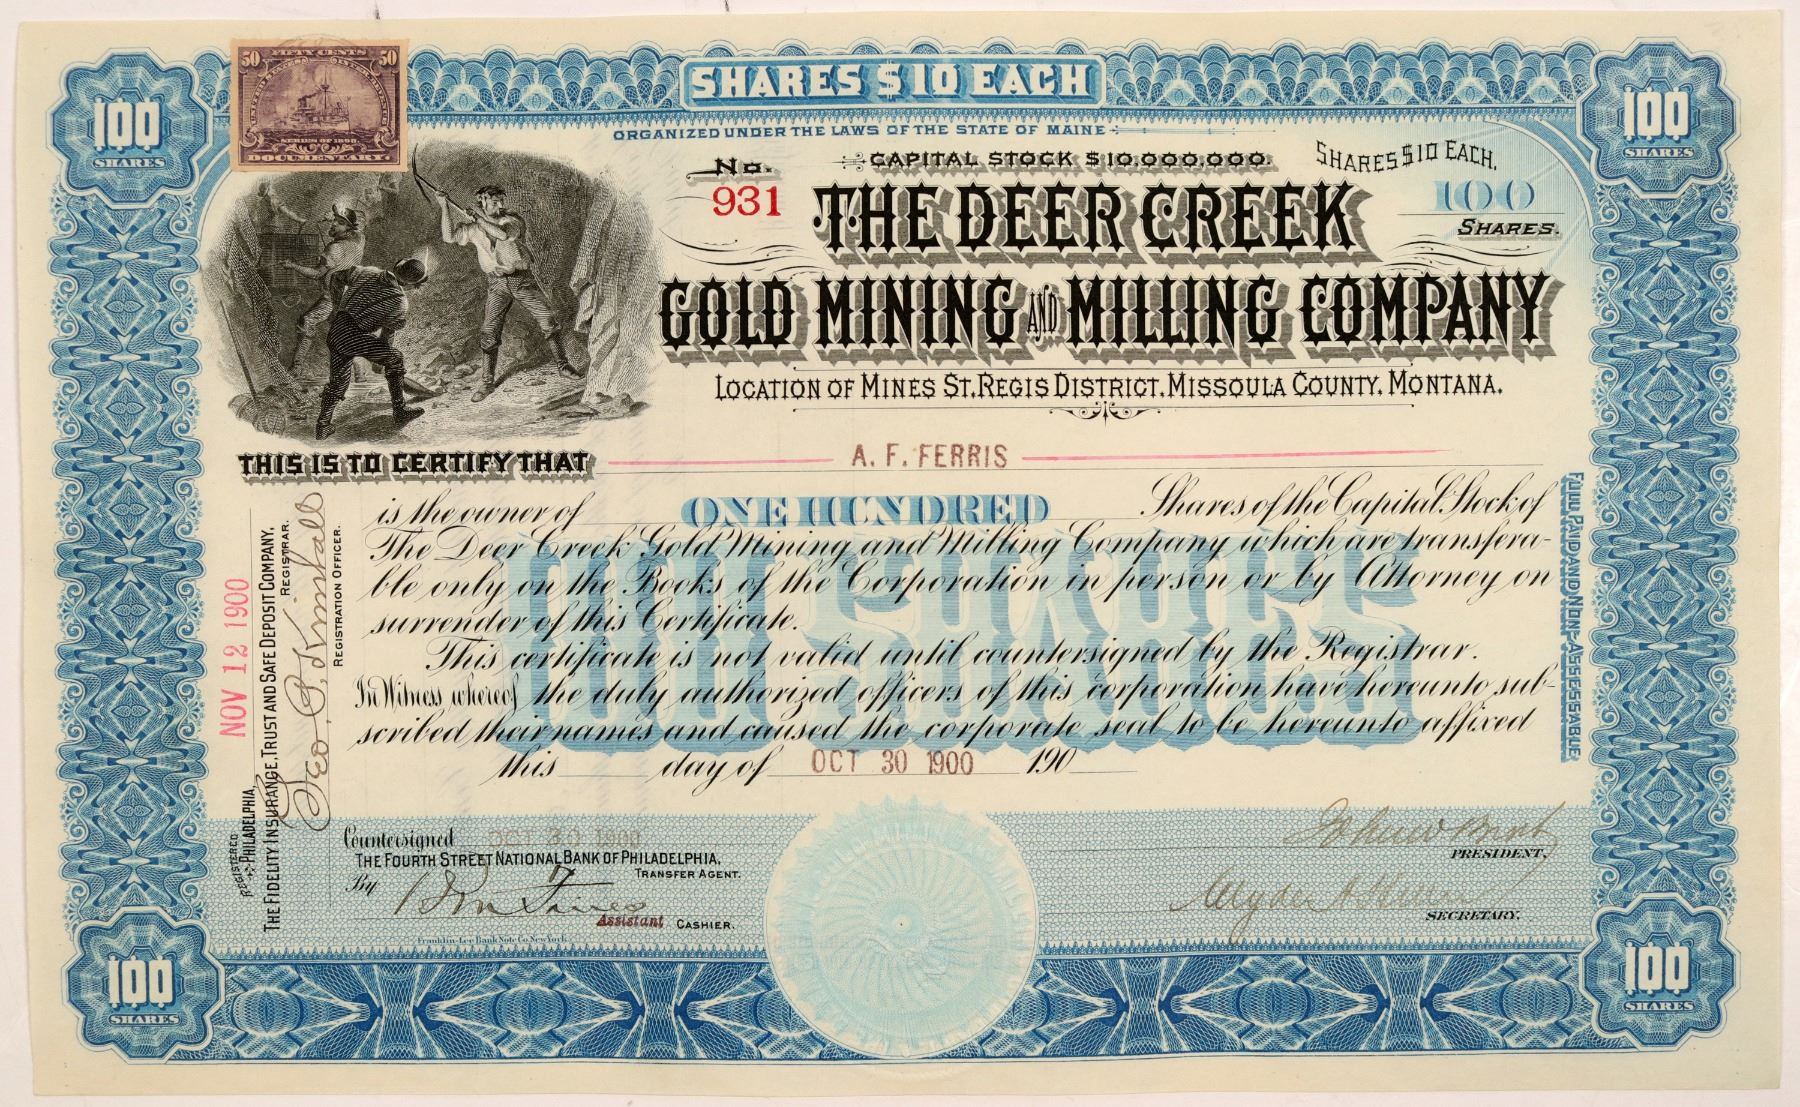 50 FIFTY CENTS 50
UNITED STATES INTER. REVENUE
SERIES OF 1898.
DOCUMENTARY.
SHARES $10 EACH
100
SHARES
100
SHARES
ORGANIZED UNDER THE LAWS OF THE STATE OF MAINE
No.
931
CAPITAL STOCK $10,000,000.
SHARES $10 EACH.
100
SHARES.
THE DEER CREEK
GOLD MINING AND MILLING COMPANY
LOCATION OF MINES ST. REGIS DISTRICT. MISSOULA COUNTY. MONTANA.
THIS IS TO CERTIFY THAT A. F. FERRIS
is the owner of ONE HUNDRED Shares of the Capital Stock of
The Deer Creek Gold Mining and Milling Company which are transfera-
ble only on the Books of the Corporation in person or by Attorney on
surrender of this Certificate.
This certificate is not valid until countersigned by the Registrar.
In Witness whereof the duly authorized officers of this corporation have hereunto sub-
scribed their names and caused the corporate seal to be hereunto affixed
this day of OCT 30 1900 190
100 SHARES
FULL PAID AND NON-ASSESSABLE
NOV 12 1900
REGISTERED
PHILADELPHIA,
THE FIDELITY INSURANCE, TRUST AND SAFE DEPOSIT COMPANY,
REGISTRAR.
Geo. P. Kimball
REGISTRATION OFFICER.
Countersigned OCT 30 1900
THE FOURTH STREET NATIONAL BANK OF PHILADELPHIA,
TRANSFER AGENT.
By
Assistant CASHIER.
Franklin-Lee Bank Note Co. New York
PRESIDENT,
SECRETARY.
100
SHARES
100
SHARES